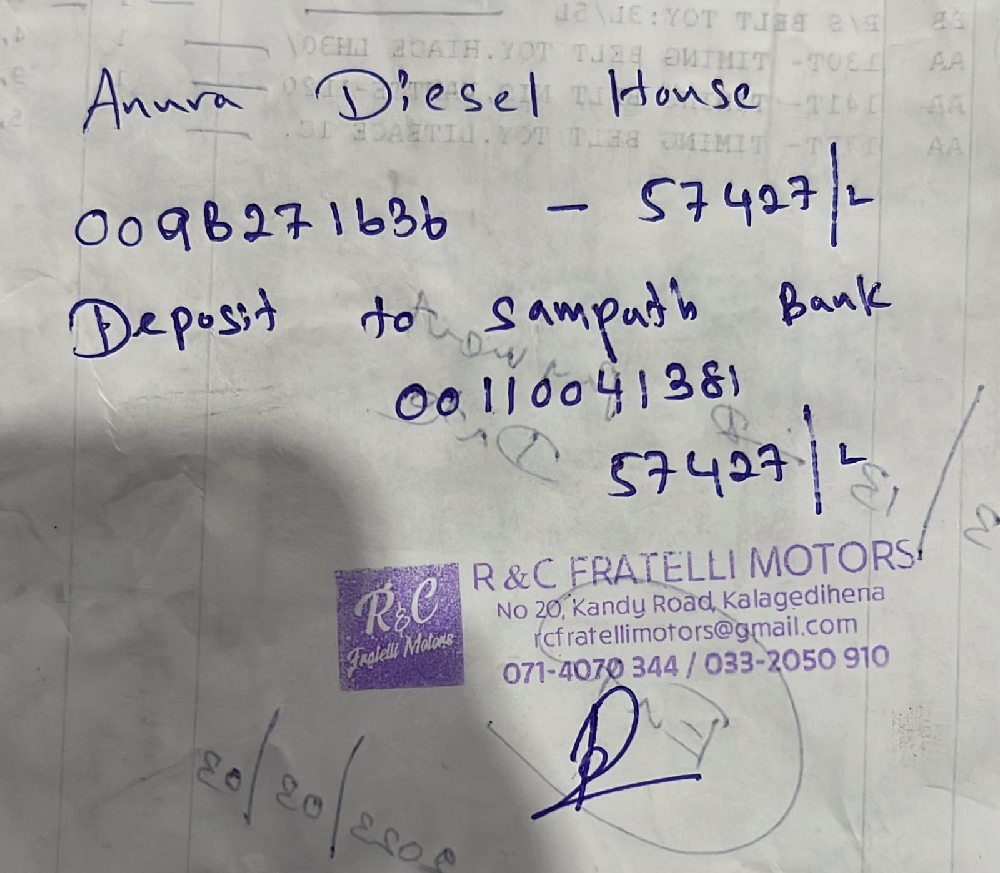 Anura Diesel House
0098271636 - 57427/-
Deposit to Sampath Bank
00110041381
57427/-
R&C
Fratelli Motors
R & C FRATELLI MOTORS
No 20, Kandy Road, Kalagedihena
rcfratellimotors@gmail.com
071-4070 344 / 033-2050 910